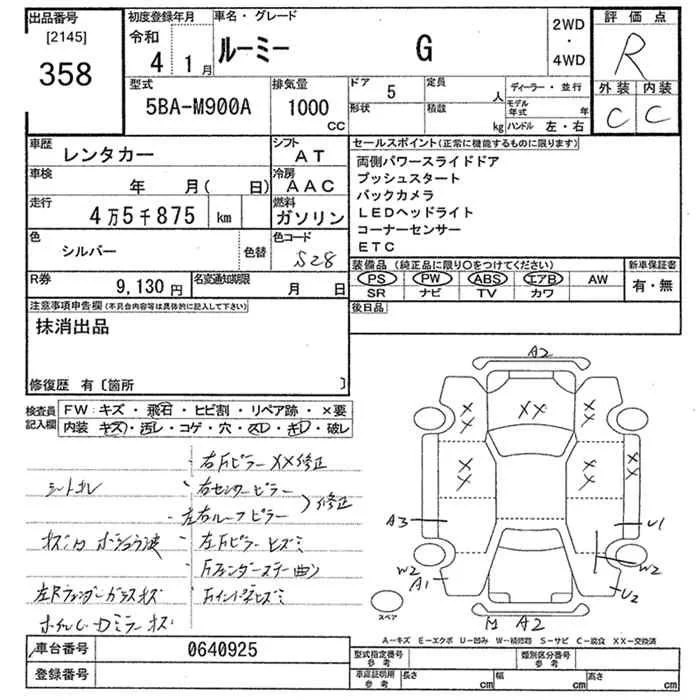 出品番号
[2145]
358
初度登録年月
令和
4 1月
車名・グレード
ルーミー G
2WD
・
4WD
評価点
R
外装 内装
C C
型式
5BA-M900A
排気量
1000
CC
ドア 5
定員 人
形状
積載 kg
ディーラー・並行
モデル年式 年
ハンドル 左・右
車歴
レンタカー
シフト
AT
車検
年 月( 日)
冷房
AAC
走行
4万5千875 km
燃料
ガソリン
色
シルバー
色替
色コード
S28
R券
9,130円
名変通知期限
月 日
セールスポイント(正常に機能するものに限ります)
両側パワースライドドア
プッシュスタート
バックカメラ
LEDヘッドライト
コーナーセンサー
ETC
装備品 (純正品に限り○をつけてください)
PS PW ABS エアB AW
SR ナビ TV カワ
新車保証書
有・無
後日品
注意事項申告欄(不具合内容等は具体的に記入して下さい)
抹消出品
修復歴 有〔箇所 〕
検査員
記入欄
FW:キズ・飛石・ヒビ割・リペア跡・×要
内装 キズ・汚レ・コゲ・穴・スレ・キレ・破レ
・右Fピラー XX修正
・右センターピラー
・左右ルーフピラー
修正
・左Fピラー ヒズミ
A2
XX
XX
XX
XX
XX
XX
A3
U1
W2
W2
A1
U2
A2
スペア
A-キズ E-エクボ U-凹み W-補修跡 S-サビ C-腐食 XX-交換済
車台番号
0640925
登録番号
型式指定番号
参考
類別区分番号
参考
車庫証明用
参考
長さ cm
幅 cm
高さ cm